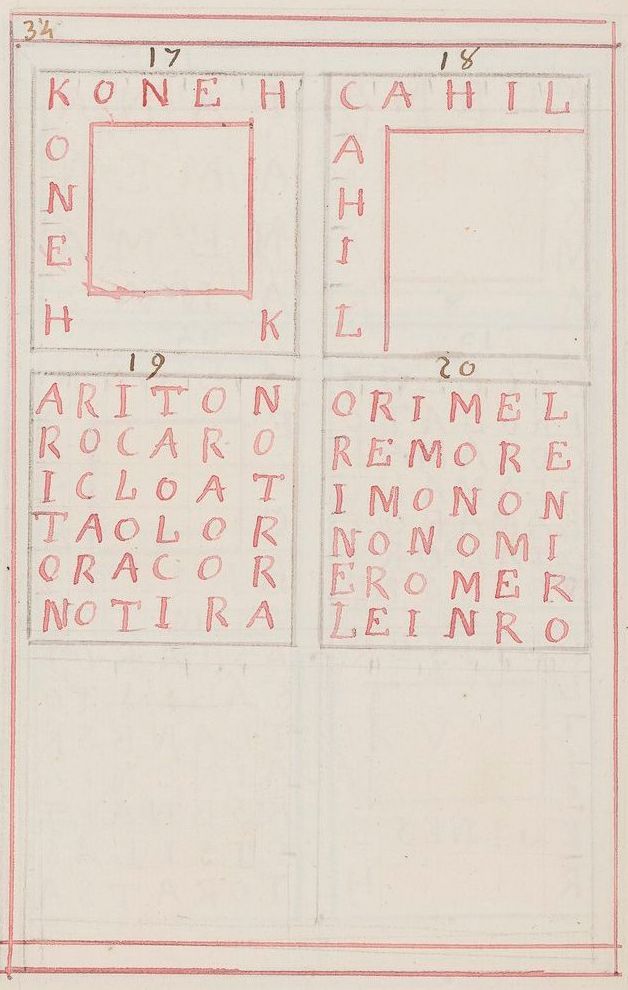 34
17
KONEH
O
N
E
H K
18
CAHIL
A
H
I
L
19
ARITON
ROCARO
ICLOAT
TAOLOR
ORACOR
NOTIRA
20
ORIMEL
REMORE
IMONON
NONOMI
EROMER
LEINRO